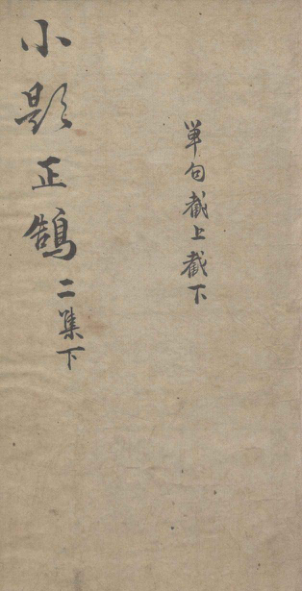 単句截上截下
小題正鵠二集下